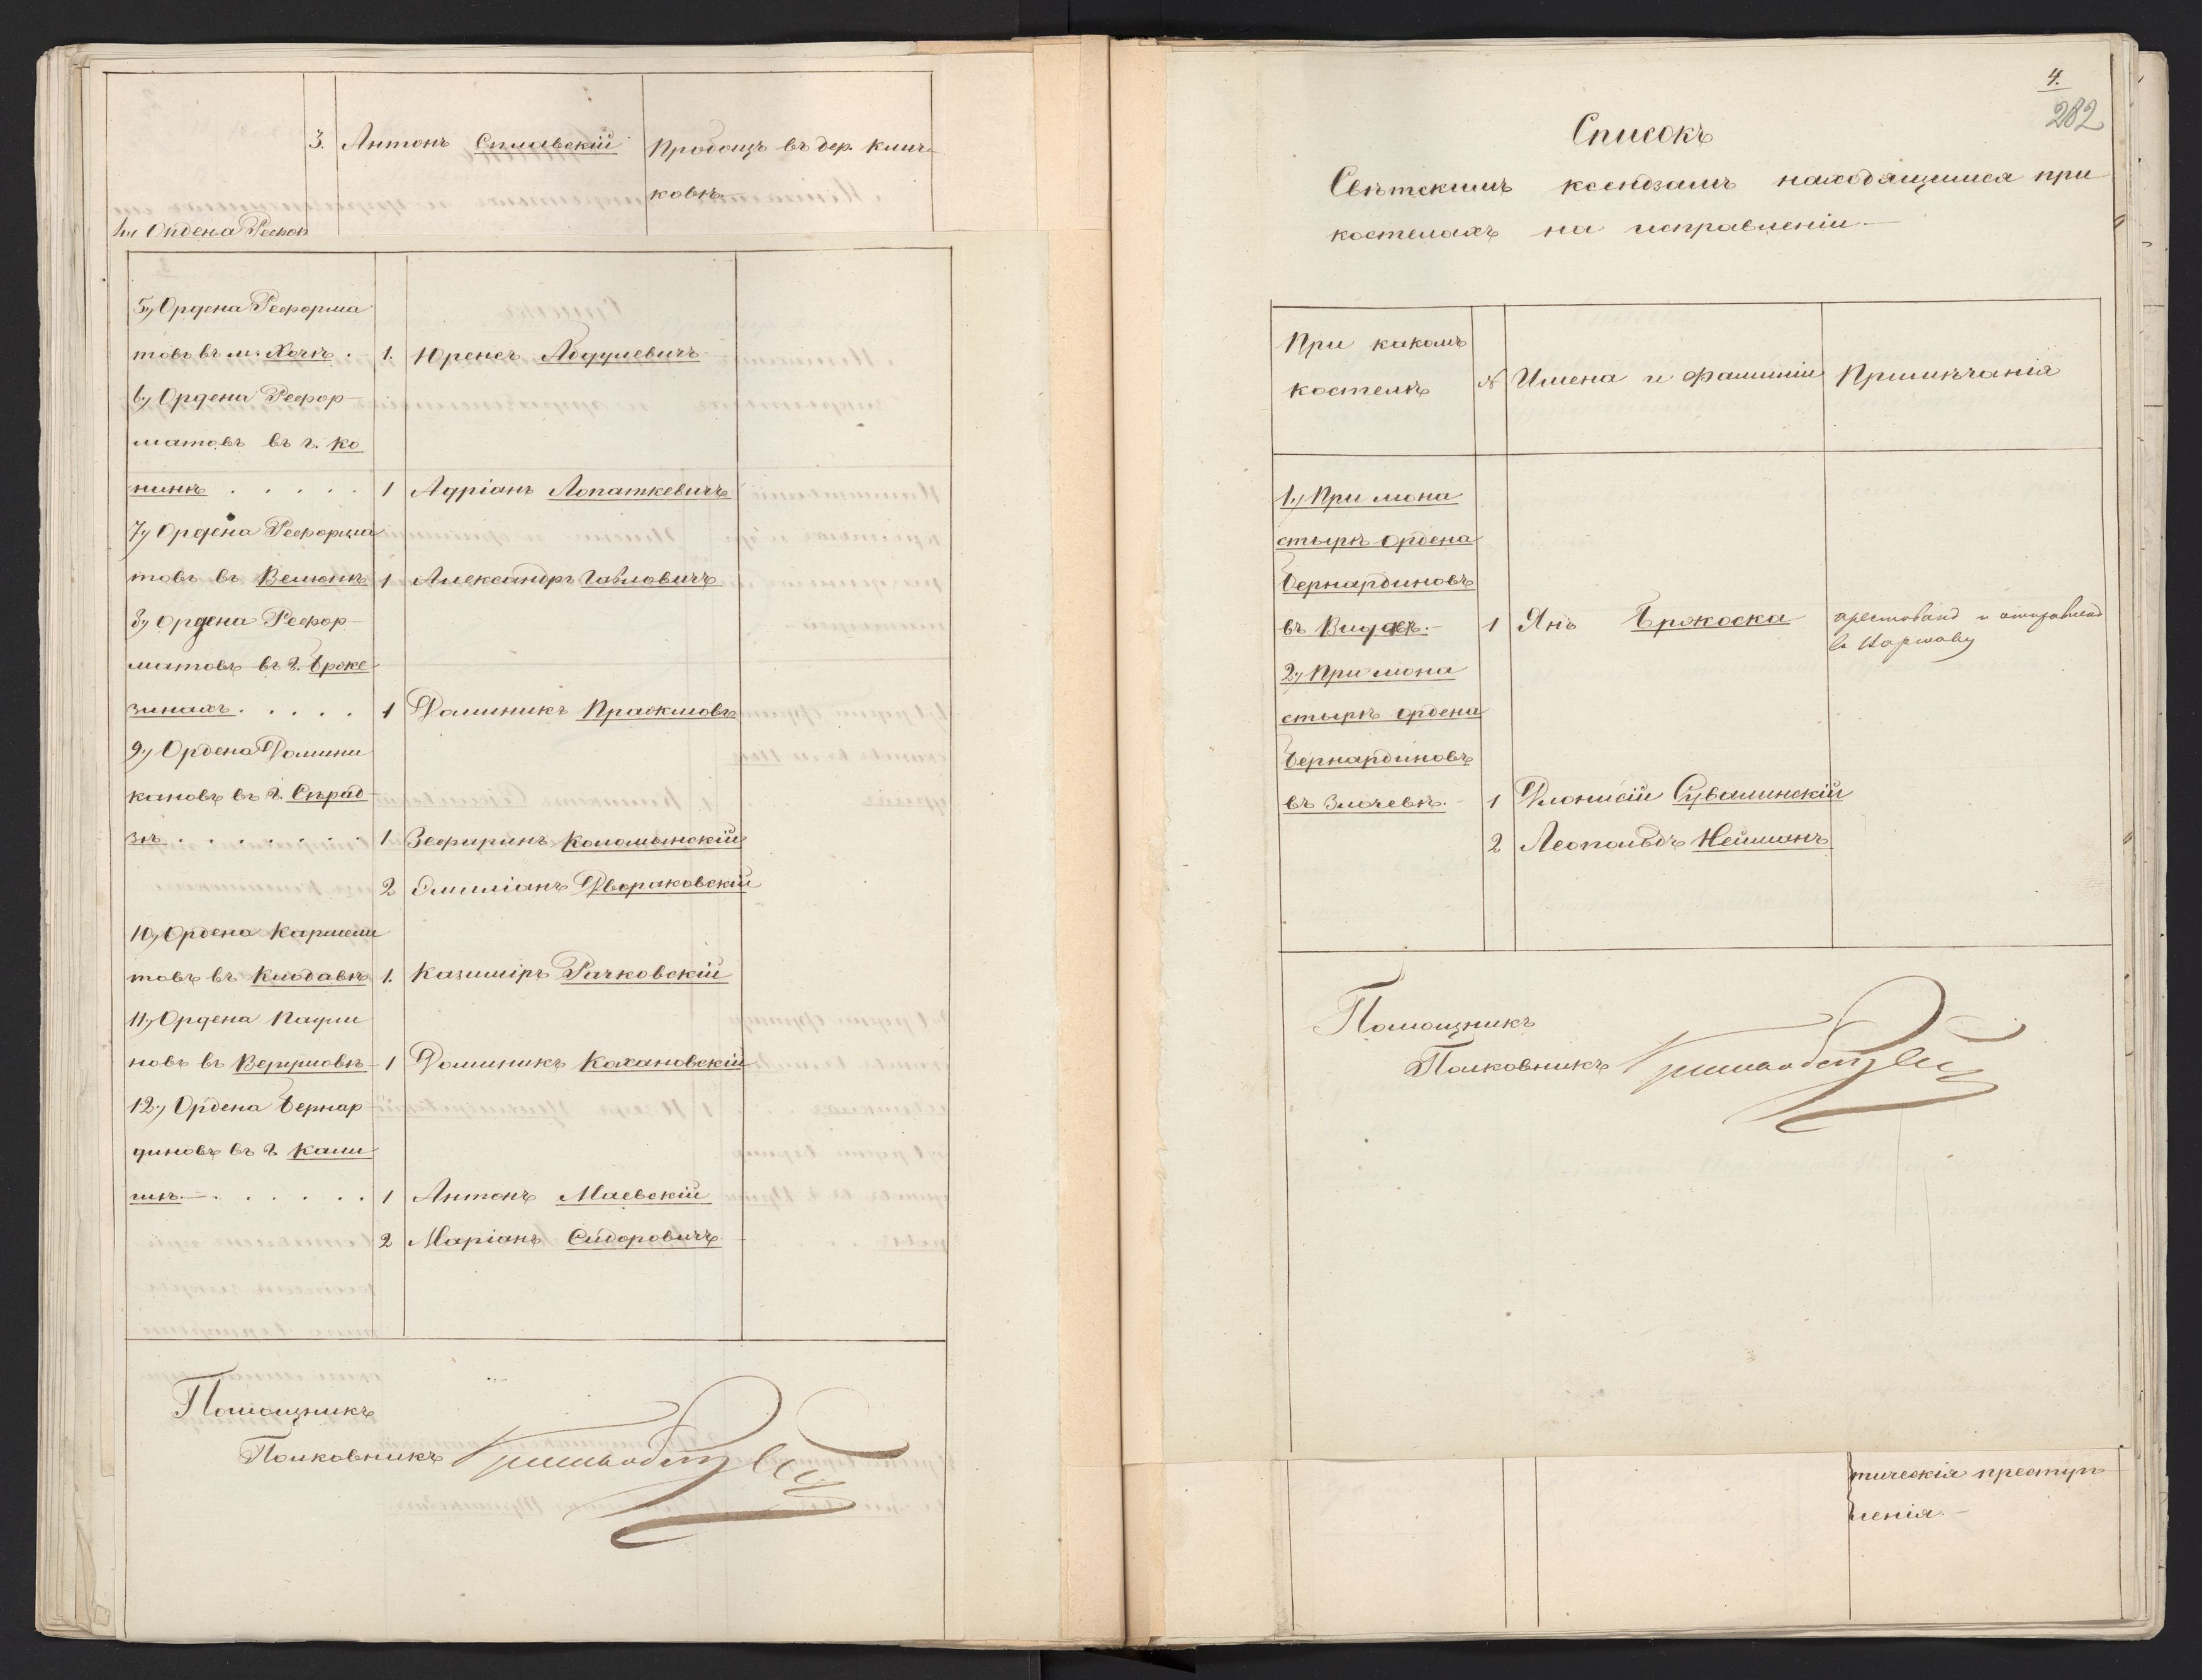 3. Антонъ Сплавскій Пробощъ въ дер. Клич-
ковѣ
Ордена Рефор
5, Ордена Реформа
товъ въ м. Хочѣ . 1. Юренсъ Абдулевичъ
6, Ордена Рефор-
матовъ въ г. Ко
нинѣ . . . . . 1 Адріанъ Лопаткевичъ
7, Ордена Реформа
товъ въ Велюнѣ 1 Александръ Гавловичъ
8, Ордена Рефор-
матовъ въ г. Брже
зинахъ . . . . 1 Доминикъ Праскмовъ
9, Ордена Домини
кановъ въ г. Сѣрад-
зѣ . . . . . . . 1. Зефиринъ Коломынскій
2 Эмиліанъ Двораковскій
10, Ордена Кармели
товъ въ Клодавѣ 1. Казиміръ Рачковскій
11, Ордена Паули
новъ въ Верушовѣ- 1 Доминикъ Кохановскій
12, Ордена Бернар-
диновъ въ г. Кали
шѣ.- . . . . . . 1 Антонъ Маевскій
2 Маріанъ Сидоровичъ
Помощникъ
Полковникъ
4.
282
Списокъ
Свѣтскимъ ксендзамъ находящимся при
костелахъ на исправленіи.-
При какомъ
костелѣ № Имена и фамиліи Примѣчанія
1, При мона
стырѣ Ордена
Бернардиновъ
въ Видавѣ.- 1 Янъ Бржоска арестованъ и отправленъ
въ Варшаву
2, При мона
стырѣ Ордена
Бернардиновъ
въ Злочевѣ.- 1 Діонисій Сувалинскій
2 Леопольдъ Нейманъ
Помощникъ
Полковникъ
тическія преступ-
ленія.-